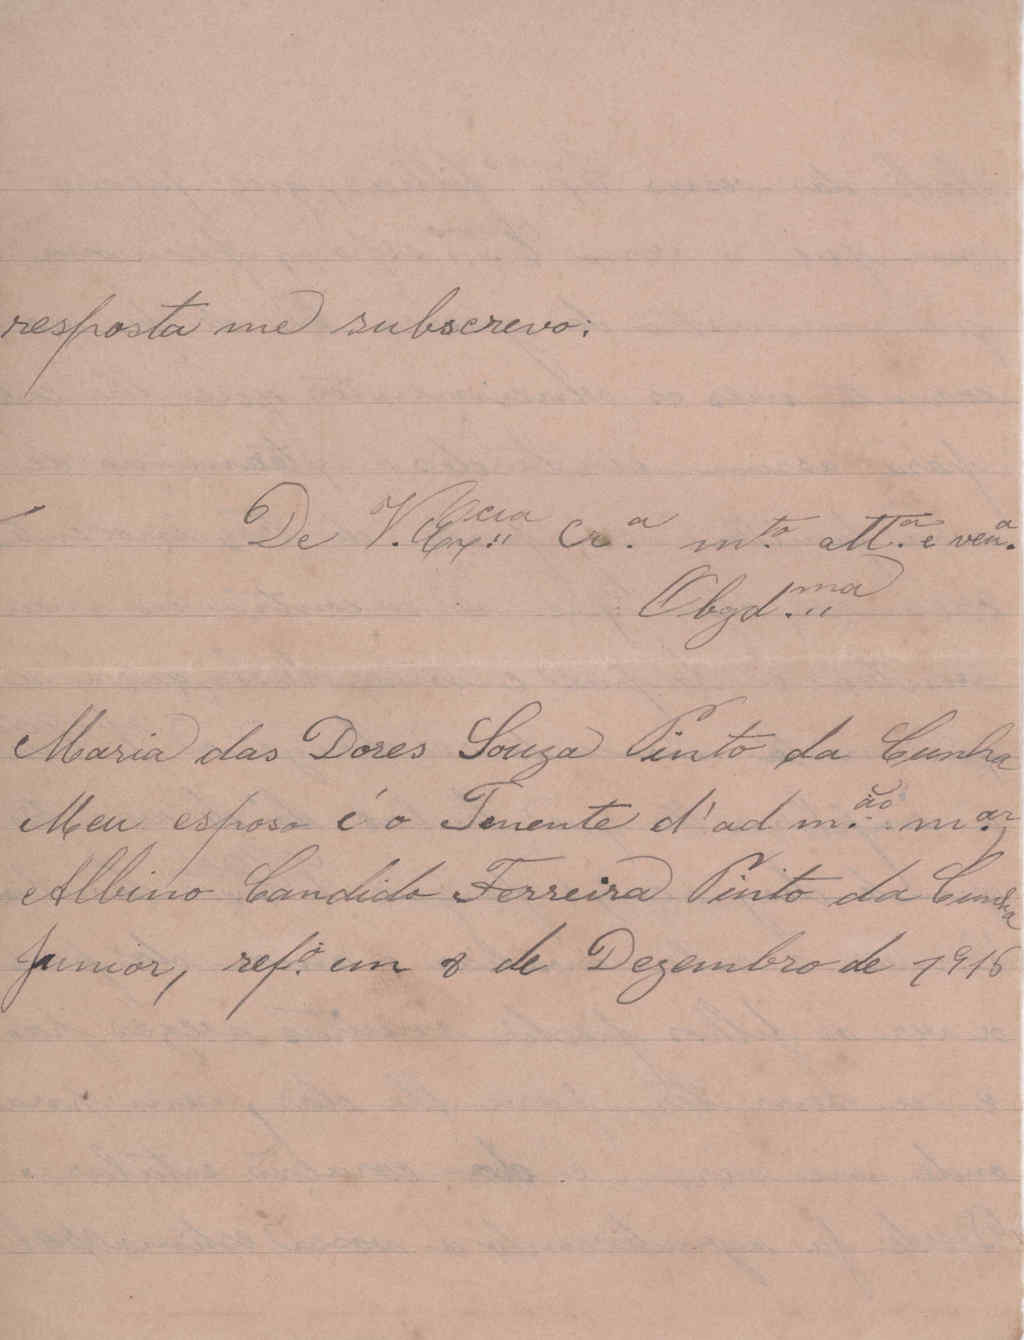 resposta me subscrevo:
De V. Ex.cia Cr.a m.to att.a e ven.a
Obgd.ma
Maria das Dores Souza Pinto da Cunha
Meu esposo é o Tenente d'adm.ão mar
Albino Candido Ferreira Pinto da Cunha
Junior, ref.o em 8 de Dezembro de 1916